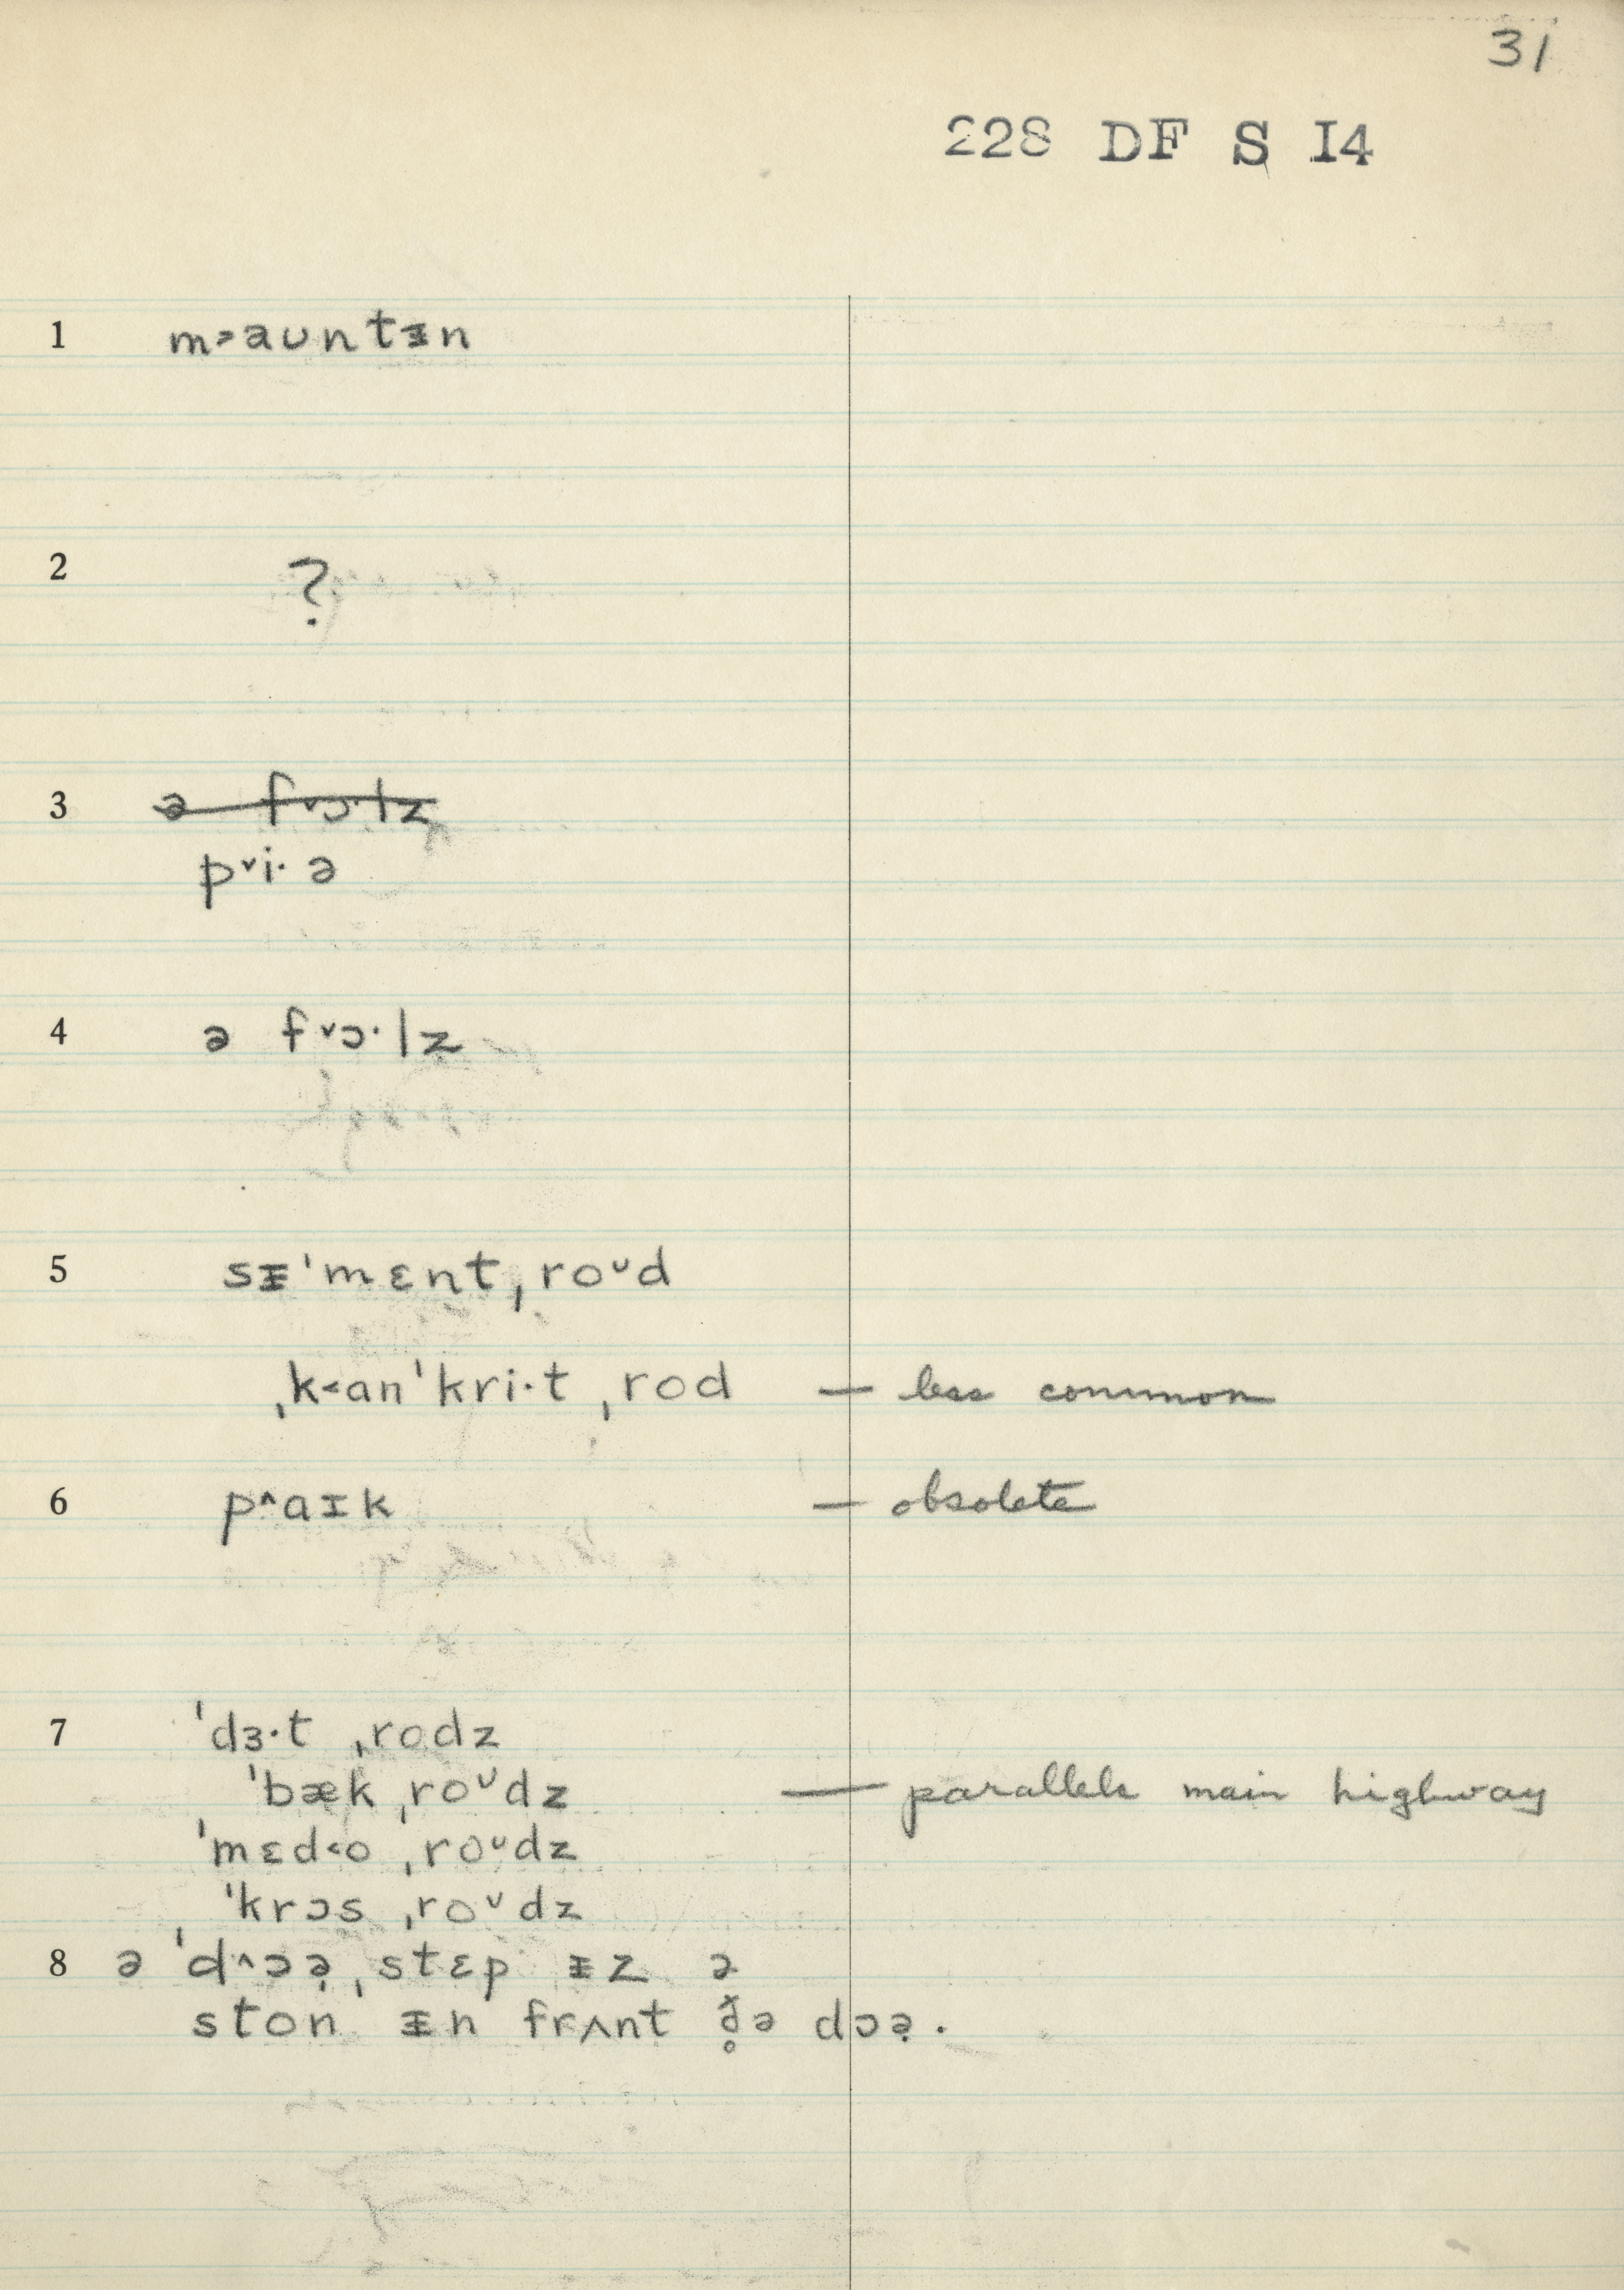 31
228 DF S I4
1 m˃aʊntᵻn
2 ?
3 ə f˅ɔ·lz
p˅i· ə
4 ə f˅ɔ·lz
5 sᵻˈmɛntˌroᴜd
ˌk˂anˈkri·t ˌrod — less common
6 p^aɪk — obsolete
7 ˈdɜ·t ˌrodz
ˈbæk ˌroᴜdz — parallels main highway
ˈmɛd˂o ˌroᴜdz
ˈkrɔs ˌroᴜdz
8 ə ˈd^ɔə̣ˌstɛp ᵻz ə
ston ᵻn frʌnt ð̥ə dɔə̣.